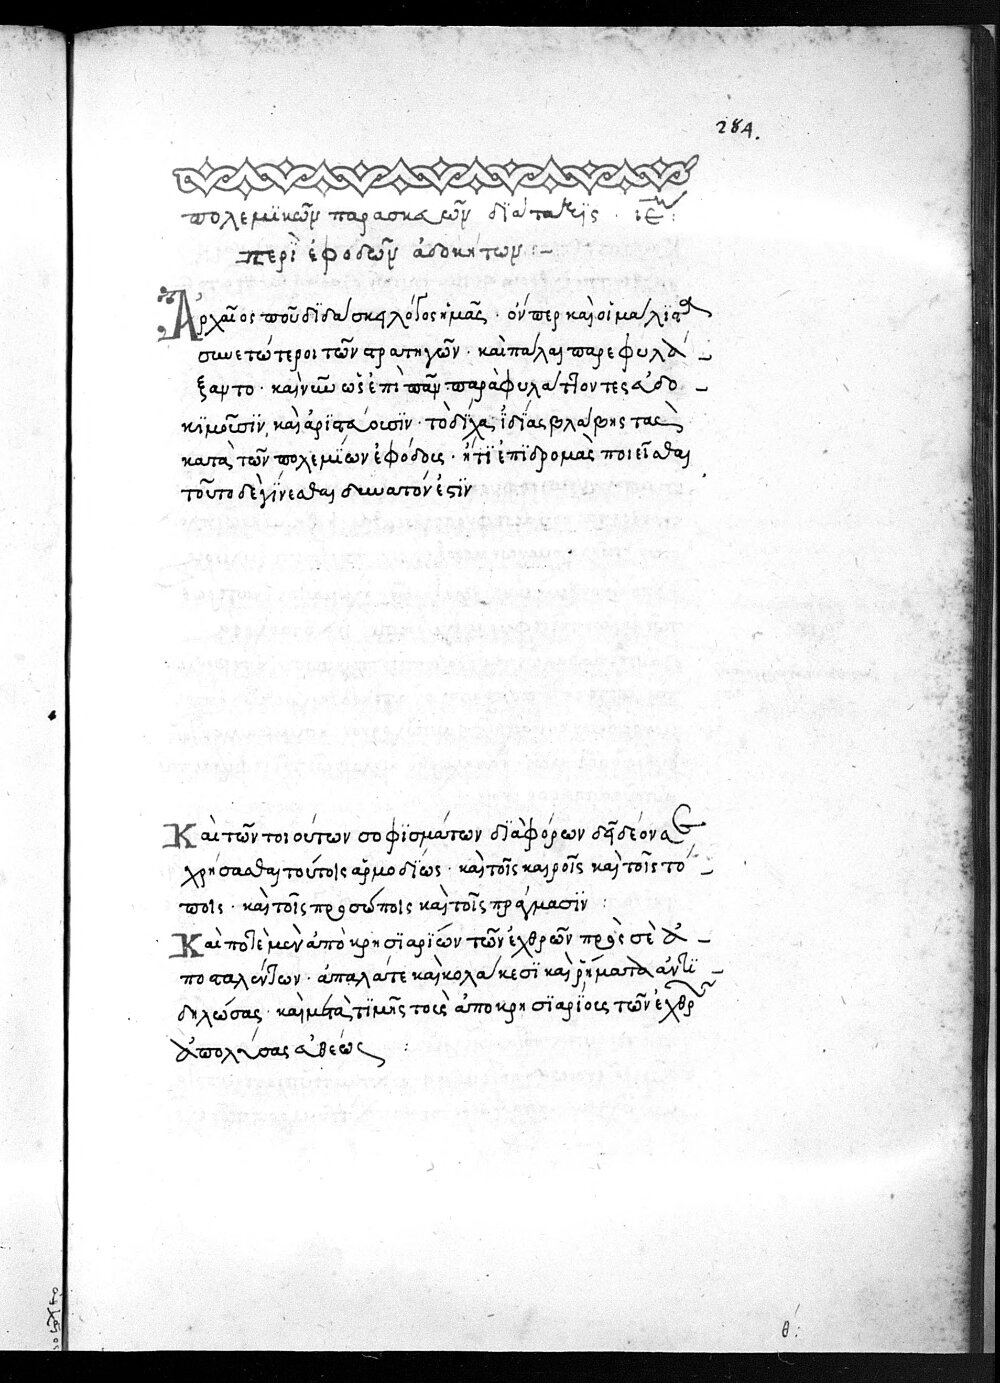 284.
πολεμϊκῶν παρασκευῶν δϊάταξϊς · ιζ̅ :
περὶ ἐφοδῶν ἀδοκήτων :–
Ἀρχαῖός που διδάσκει λόγος ἡμᾶς · ὅνπερ καὶ οἱ μάλιστα
συνετώτεροι τῶν στρατηγῶν · καὶ πάλαι παρεφυλά-
ξαντο · καὶ νῦν ὡς ἐπὶ πᾶν παραφυλάττοντες εὐδο-
κιμοῦσϊν, καὶ ἀριστεύουσϊν · τὸ δίχα ἰδίας βλάβης τὰς
κατὰ τῶν πολεμίων ἐφόδους · ἤτϊ ἐπϊδρομὰς ποιεῖσθαι
τοῦτο δὲ γίνεσθαι δυνατόν ἐστϊν
Καὶ τῶν τοιούτων σοφϊσμάτων δϊαφόρων δεῖ δέοντως
χρήσασθαι τούτοις ἁρμοδίως · καὶ τοῖς καιροῖς καὶ τοῖς τό-
ποις · καὶ τοῖς προσώποις καὶ τοῖς πράγμασϊν
Καὶ ποτὲ μὲν ἀποκρησϊαρίων τῶν ἐχθρῶν πρὸς σὲ ἀ-
ποσταλέντων · ἁπαλά τε καὶ κολακεσϊ καὶ ῥήματα ἀντϊ-
δηλώσας · καὶ μετὰ τϊμῆς τοὺς ἀποκρησϊαρίους τῶν ἐχθρῶν
ἀπολύσας εὐθέως :
θ′.